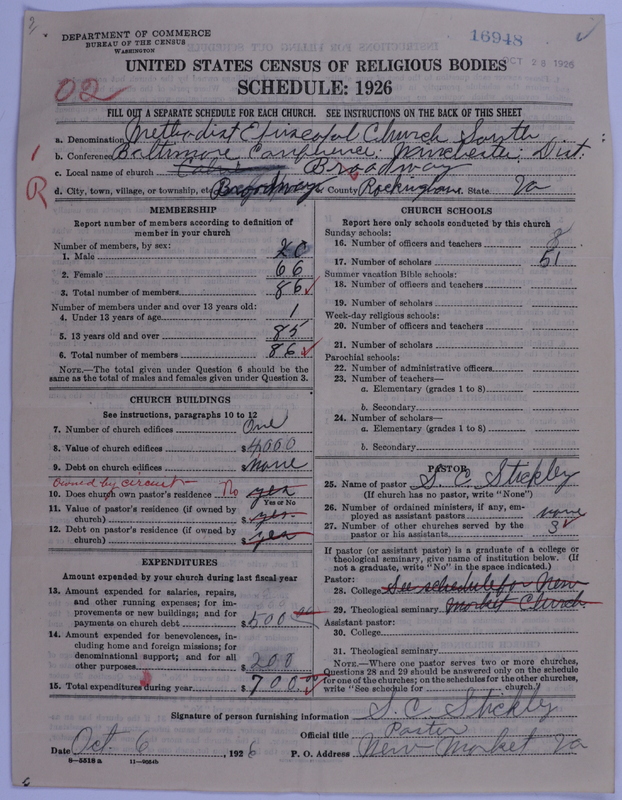 16948
OCT 28 1926
DEPARTMENT OF COMMERCE
BUREAU OF THE CENSUS
WASHINGTON
UNITED STATES CENSUS OF RELIGIOUS BODIES
SCHEDULE: 1926
02
FILL OUT A SEPARATE SCHEDULE FOR EACH CHURCH. SEE INSTRUCTIONS ON THE BACK OF THIS SHEET
a. Denomination Methodist Episcopal Church South
b. Conference Baltimore Conference. Winchester Dist.
c. Local name of church Broadway
R d. City, town, village, or township, etc. Broadway County Rockingham State Va
MEMBERSHIP
Report number of members according to definition of
member in your church
Number of members, by sex:
1. Male 20
2. Female 66
3. Total number of members 86
Number of members under and over 13 years old:
4. Under 13 years of age 1
5. 13 years old and over 85
6. Total number of members 86
NOTE.—The total given under Question 6 should be the
same as the total of males and females given under Question 3.
CHURCH BUILDINGS
See instructions, paragraphs 10 to 12
7. Number of church edifices One
8. Value of church edifices $ 4000
9. Debt on church edifices $ None
Owned by circuit
10. Does church own pastor's residence No yes
Yes or No
11. Value of pastor's residence (if owned by
church) $ yes
12. Debt on pastor's residence (if owned by
church) $ yes
EXPENDITURES
Amount expended by your church during last fiscal year
13. Amount expended for salaries, repairs,
and other running expenses; for im-
provements or new buildings; and for
payments on church debt $ 500
14. Amount expended for benevolences, in-
cluding home and foreign missions; for
denominational support; and for all
other purposes $ 200
15. Total expenditures during year $ 700.00
CHURCH SCHOOLS
Report here only schools conducted by this church
Sunday schools:
16. Number of officers and teachers 8
17. Number of scholars 51
Summer vacation Bible schools:
18. Number of officers and teachers
19. Number of scholars
Week-day religious schools:
20. Number of officers and teachers
21. Number of scholars
Parochial schools:
22. Number of administrative officers
23. Number of teachers—
a. Elementary (grades 1 to 8)
b. Secondary
24. Number of scholars—
a. Elementary (grades 1 to 8)
b. Secondary
PASTOR
25. Name of pastor S. C. Strickley
(If church has no pastor, write "None")
26. Number of ordained ministers, if any, em-
ployed as assistant pastors none
27. Number of other churches served by the
pastor or his assistants 3
If pastor (or assistant pastor) is a graduate of a college or
theological seminary, give name of institution below. (If
not a graduate, write "No" in the space indicated.)
Pastor:
28. College See schedule for New
29. Theological seminary Market Church
Assistant pastor:
30. College
31. Theological seminary
NOTE.—Where one pastor serves two or more churches,
Questions 28 and 29 should be answered only on the schedule
for one of the churches; on the schedules for the other churches,
write "See schedule for church."
Signature of person furnishing information S. C. Strickley
Official title Pastor
Date Oct. 6, 1926 P. O. Address New Market Va
8—5518 a 11—9064b